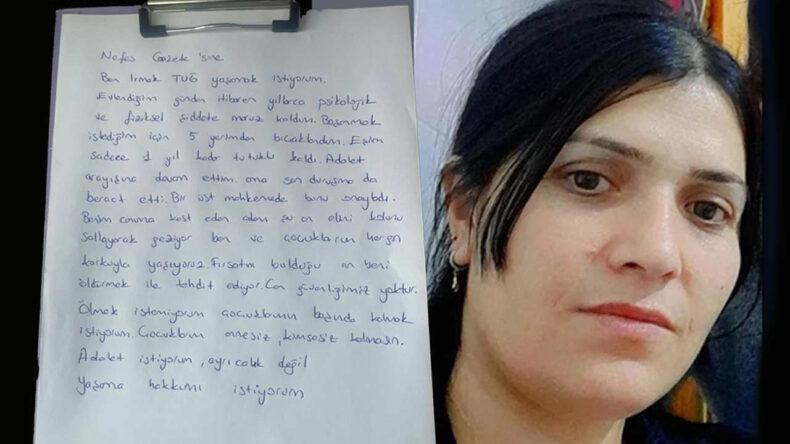 Nefes Gazete 'sine
Ben Irmak TUĞ yaşamak istiyorum.
Evlendiğim günden itibaren yıllarca psikolojik
ve fiziksel şiddete maruz kaldım. Boşanmak
istediğim için 5 yerimden bıçaklandım. Eşim
sadece 1 yıl kadar tutuklu kaldı. Adalet
arayışına devam ettim. ama son duruşma da
beraat etti. Bir üst mahkemede bunu onayladı.
Benim canıma kast eden adam şu an elini kolunu
sallayarak geziyor ben ve çocuklarım hergün
korkuyla yaşıyoruz. Fırsatını bulduğu an beni
öldürmek ile tehdit ediyor. Can güvenliğimiz yoktur.
Ölmek istemiyorum çocuklarımın başında kalmak
istiyorum. Çocuklarım annesiz, kimsesiz kalmasın.
Adalet istiyorum, ayrıcalık değil
Yaşama hakkımı istiyorum